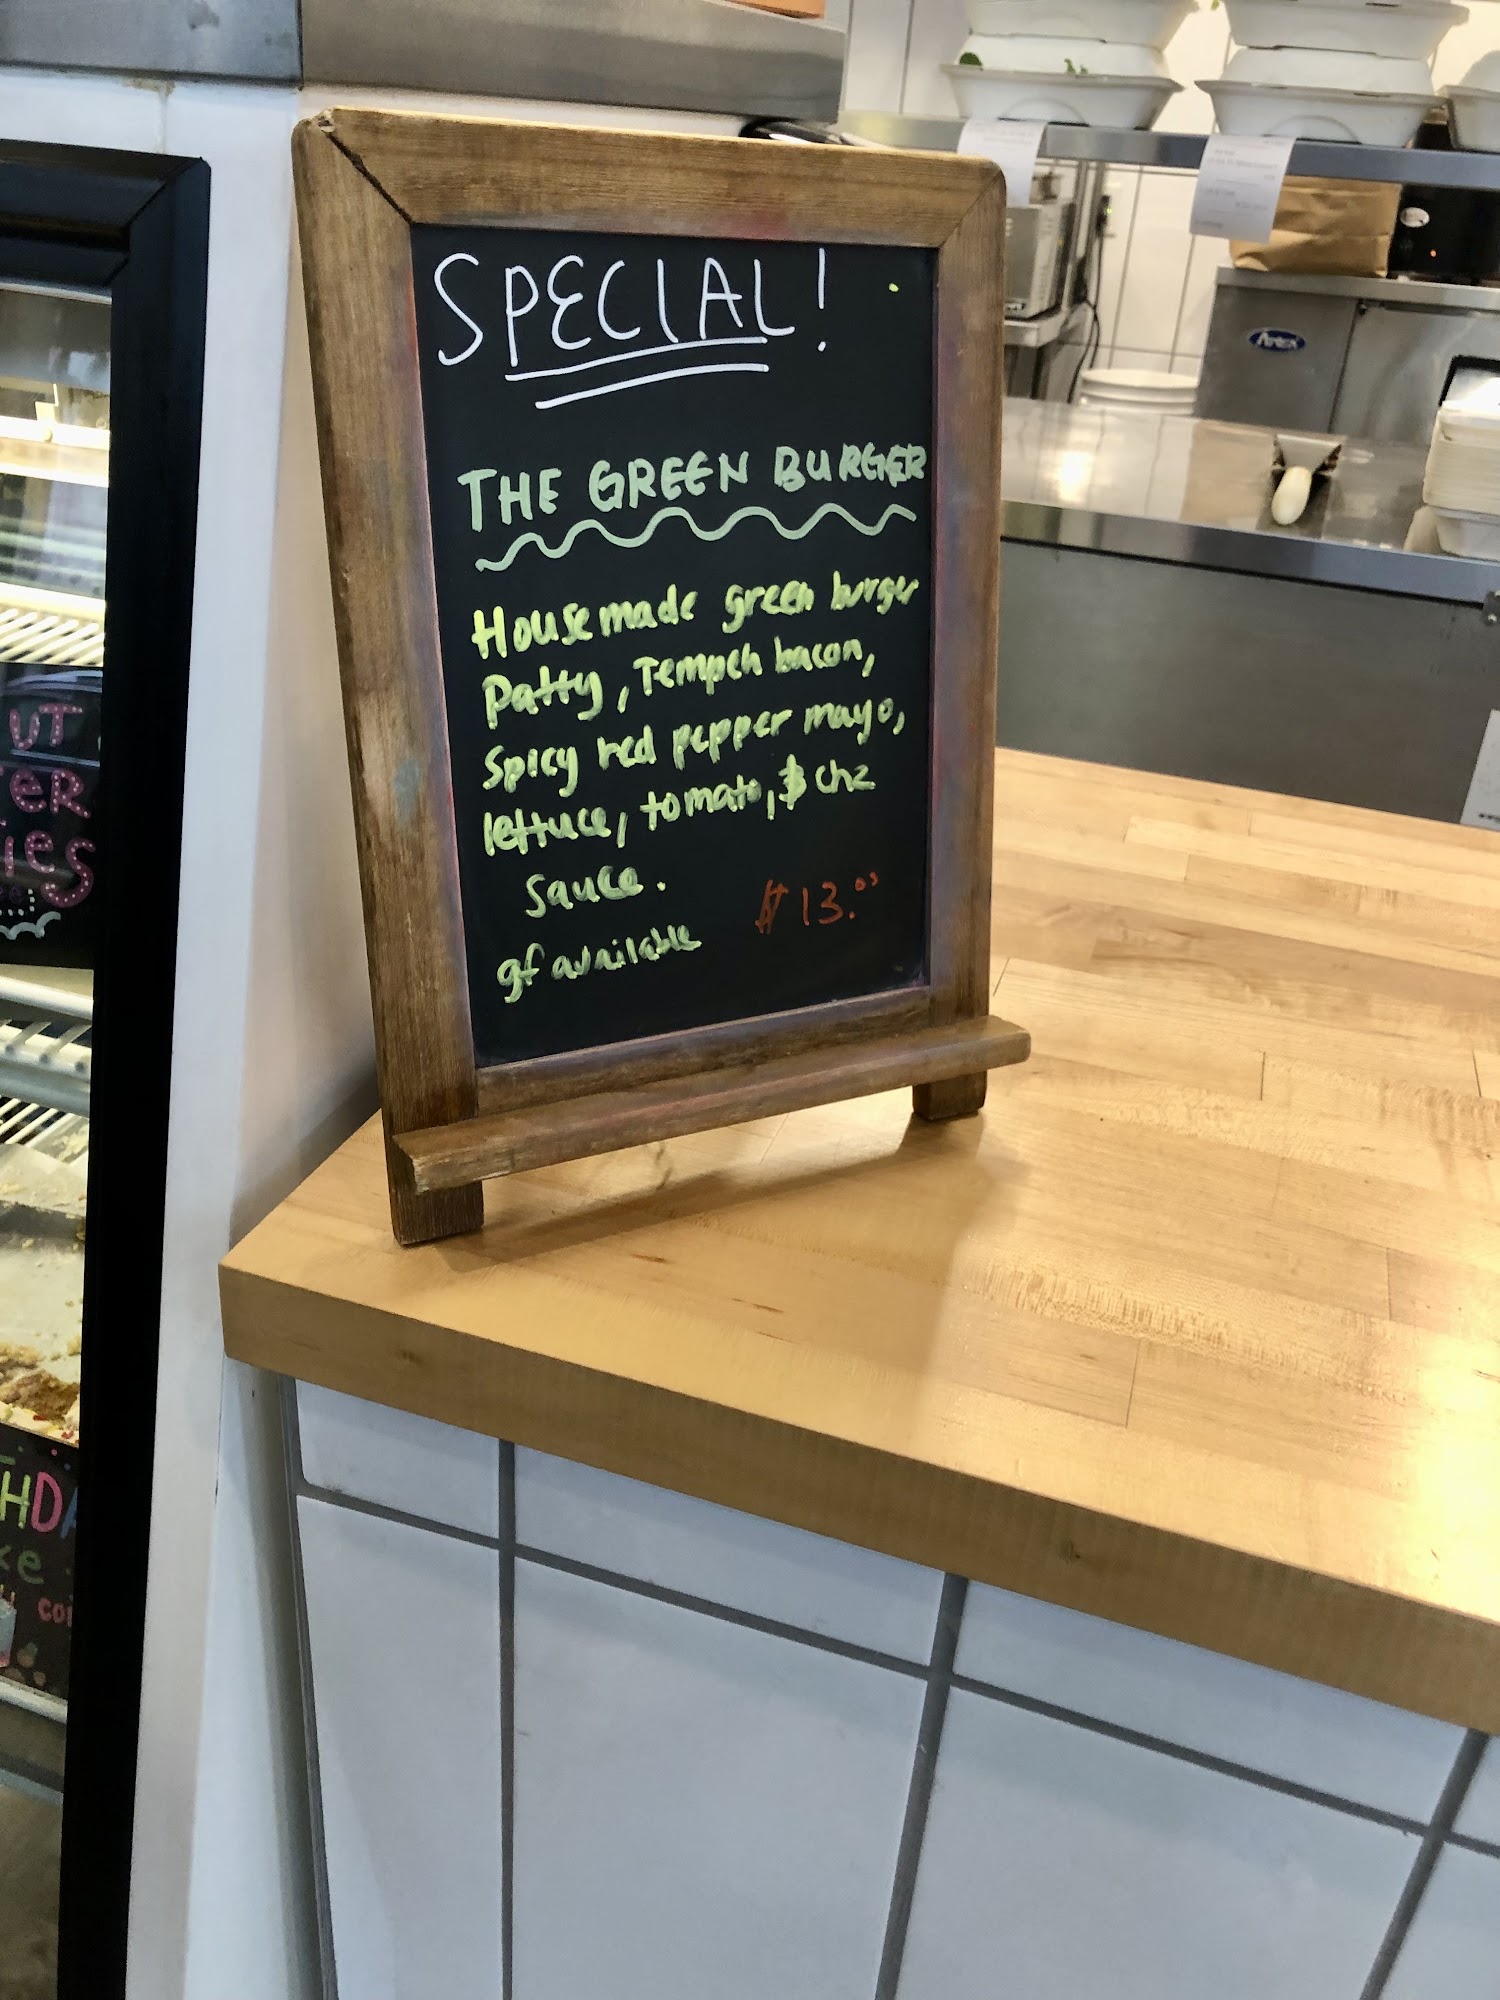 SPECIAL!
THE GREEN BURGER
Housemade green burger
Patty, Tempeh bacon,
Spicy red pepper mayo,
lettuce, tomato, & chz
sauce.
gf available
$13.⁰⁰
UT
ER
IES
HD
ke
COL